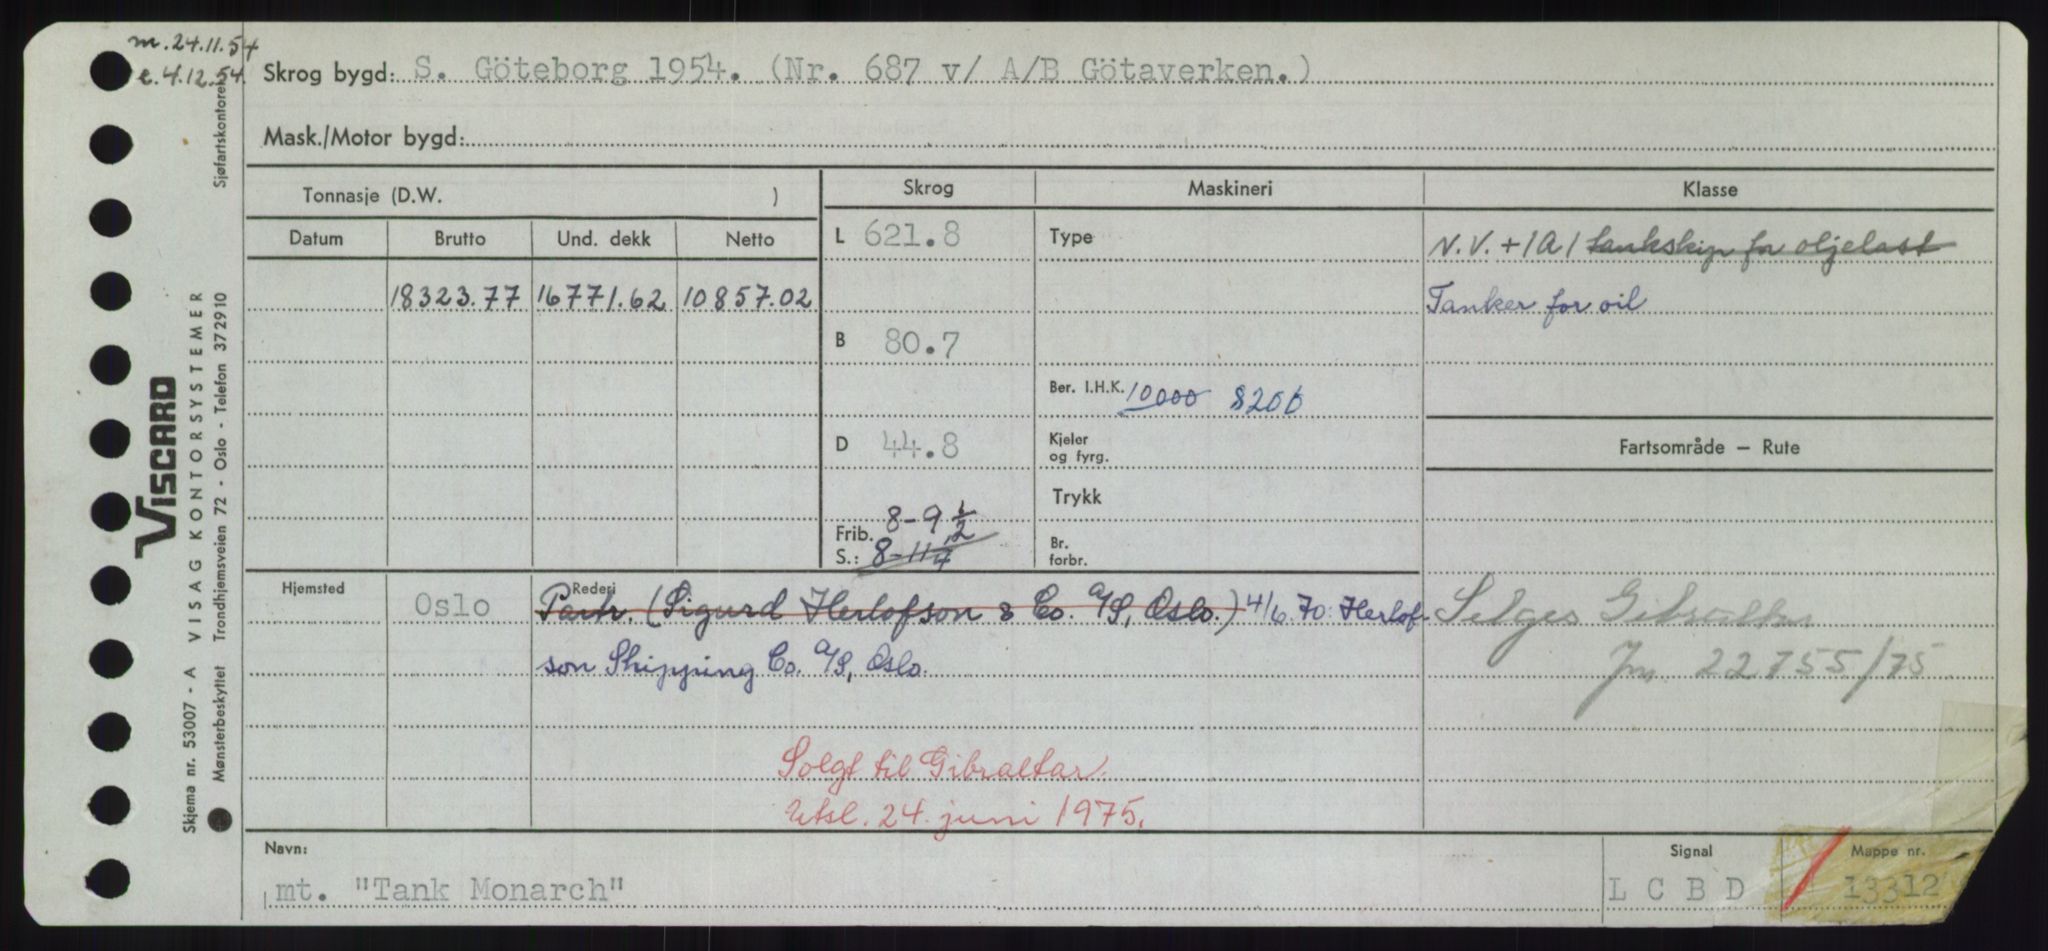 m. 24.11.54
e. 4.12.54.
Skrog bygd: S. Göteborg 1954. (Nr. 687 v/ A/B Götaverken.)
Mask./Motor bygd:
Tonnasje (D.W. )
Skrog
Maskineri
Klasse
Datum
Brutto
Und. dekk
Netto
18323.77
16771.62
10857.02
L 621.8
B 80.7
D 44.8
Frib. 8-9 1/2
S.: 8-11
Type
Ber. I.H.K. 10000 8200
Kjeler
og fyrg.
Trykk
Br.
forbr.
N.V. +1A1 tankskip for oljelast
Tanker for oil
Fartsområde — Rute
Hjemsted
Oslo
Rederi
Partr. (Sigurd Herlofson & Co. A/S, Oslo.) 4/6.70: Herlof-
son Shipping Co. A/S, Oslo.
Selges Gibraltar
Jnr. 22755/75
Solgt til Gibraltar.
Utsl. 24. juni 1975.
Navn:
mt. "Tank Monarch"
Signal
L C B D
Mappe nr.
13312
Skjema nr. 53007 - A VISAG KONTORSYSTEMER
Mønsterbeskyttet Trondhjemsveien 72 - Oslo - Telefon 372910
Sjøfartskontoret
VISCARD